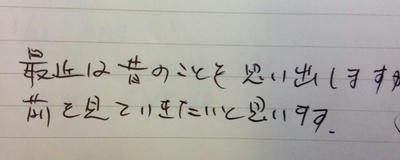 最近は昔のことも思い出しますが
前を見ていきたいと思います。